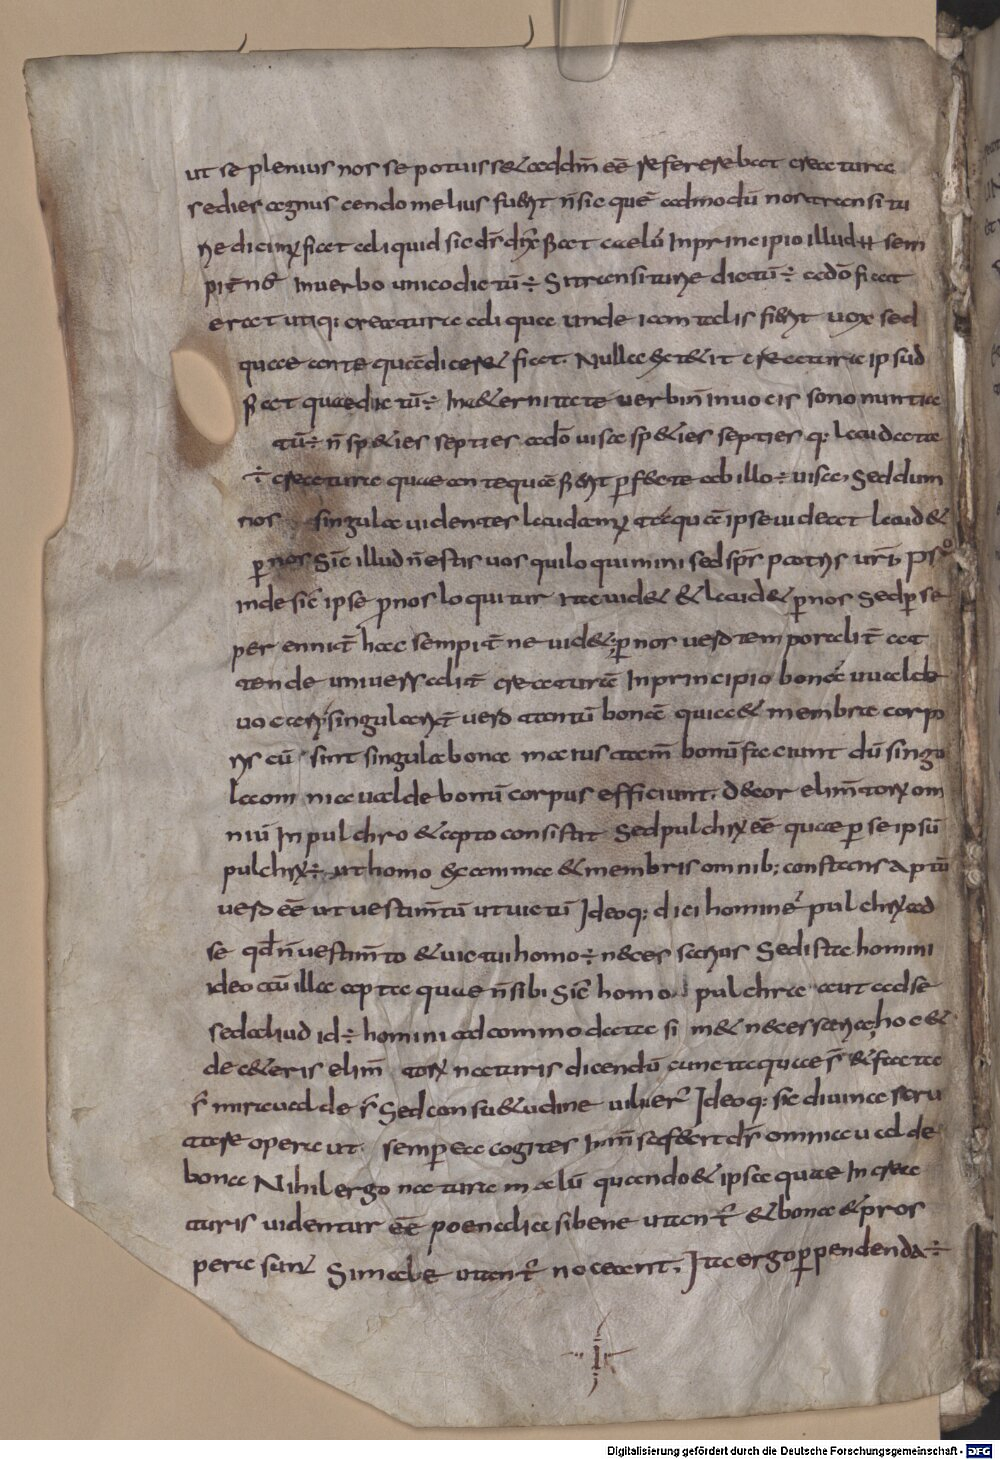 ut se plenius nos se potuisse & addm̄ eē referere beat creatura
sed ies agnus cendo melius fiunt n̄ sic quē admodū nos transitu
ne dicimus fiat aliquid sic dr̄ fiat caelū In principio illud sem
pit̄ no In uerbo unico dictū÷ Si transiturae dictū÷ adō fiat
erat utiq; creatura aliqua unde iam talis fiunt uox sed
quae ante quā diceret fiat. Nulla & it creatura ipsud
fiat quae dictū÷ In & ernitate uerbi n̄ in uocis sono nuntia
tū÷ n̄ sp&ies septies adō uisa sp&ies septies q; laudata
÷ creatura quae ante quā fiunt p̄f&te ab illo÷ uisa, Sed dum
nos singula uidentes laudamus atquā ipse uideat laud&
p nos Sic illud n̄ estis uos qui loquimini sed sps̄ patris ur̄i Ps
inde sic ipse p nos loquitur ita uid& & laud& p nos Sed p se
per ennit̄ haec sempit̄ne uid& p nos uero temporalit̄ at
tende uniuersalit̄ creaturā In principio bonā ualde
uocans singularit̄ uero tantū bonā quia & membra corpo
ris cū sint singula bona maius tam̄ bonū faciunt dū singu
la omnia ualde bonū corpus efficiunt. decor elim̄torū om
niū In pulchro & apto consistit Sed pulchrū eē quae p se ipsū
pulchrū÷ ut homo ex anima & membris omnib; constans Aptū
uero eē ut uestim̄tū ut uictū Ideoq; dici hominē pulchrū ad
se qd̄ n̄ uestim̄to & uictui homo÷ necessarius Sed ista homini
ideo cū illa apta quae n̄ sibi Sic homo pulchra aut ad se
sed aliud id÷ homini adcommodata si m& necessaria, hoc &
de c&eris elim̄torū naturis dicendū cuncta quae s̄ & facta
s̄ mira ualde s̄ Sed consu&udine uiluer̄ Ideoq; sic diuina scru
tare opera ut semp ea cogites Inm̄s& fecit dr̄ omnia ualde
bona Nihil ergo natura malū quando & ipsa quae In crea
turis uidentur eē poenalia si bene utant̄ & bona & pros
pera sunt Si male utant̄ noceant. Ita ergo p̄pendenda÷
I
Digitalisierung gefördert durch die Deutsche Forschungsgemeinschaft - DFG